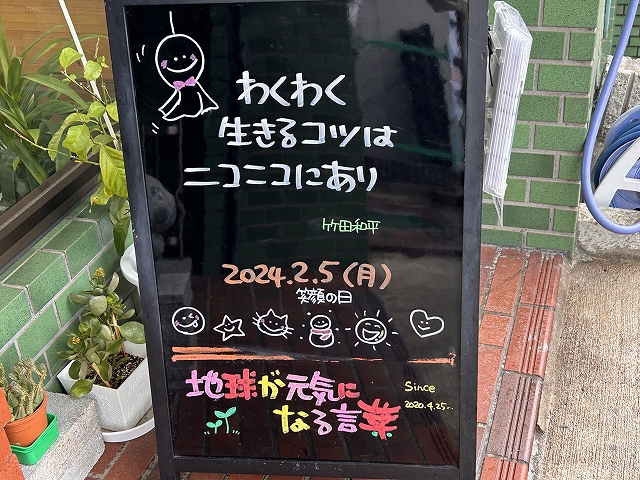 わくわく
生きるコツは
ニコニコにあり
竹田和平
2024.2.5(月)
笑顔の日
地球が元気に
なる言葉
Since
2020.4.25〜